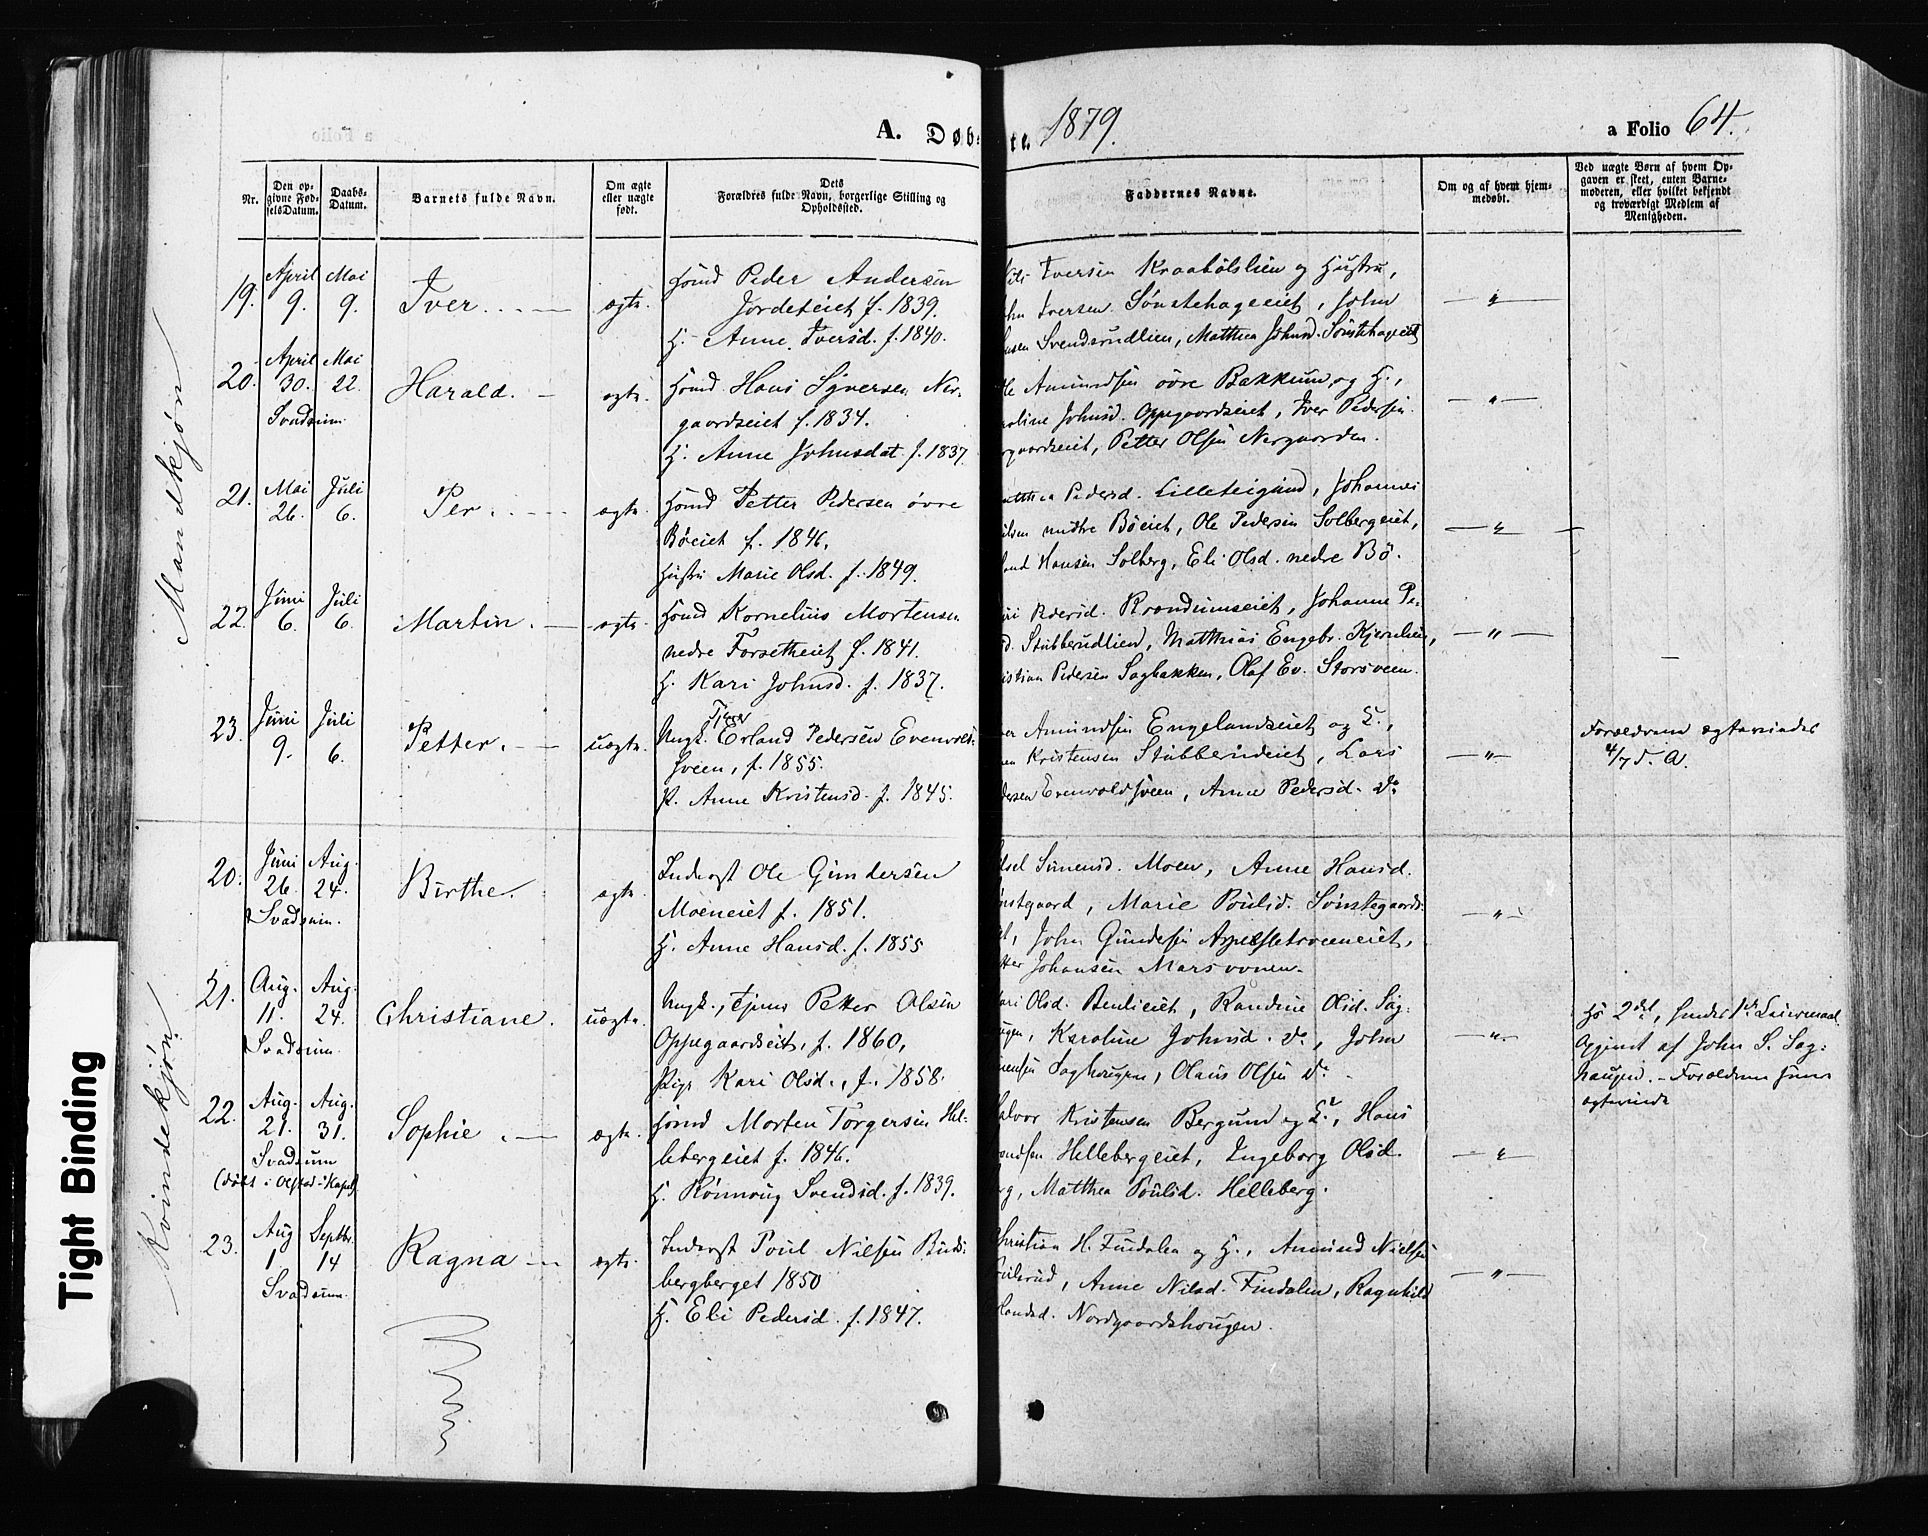 A. Døb- te. 1879.
a Folio 64.
Nr.
Den opgivne FødselsDatum.
Daabs-Datum.
Barnets fulde Navn.
Om ægte eller uægte født.
Dets Forældres fulde Navn, borgerlige Stilling og Opholdssted.
Faddernes Navne.
Om og af hvem hjemmedøbt.
Ved uægte Børn af hvem Opgaven er skeet, enten Barnemoderen, eller hvilket bekjendt og troværdigt Medlem af Menigheden.
Mandkjøn
19. April 9. Mai 9. Iver. ægte.
Hsmd Peder Andersen
Jordeteiet f. 1839.
H. Anne Iversd. f. 1840.
Iversen Kraabølslien og Hustru,
Iversen Sønstehageeiet, John
Svendsrudlien, Matthea Johnsd. Sønstehageeiet
20. April 30. Mai 22. Harald. ægte.
Svadsum
Hsmd Hans Syversen Ner-
gaardseiet f. 1834.
H. Anne Johnsdat f. 1837.
Amundsen øvre Bakkum og H.,
Johnsd. Oppegaardseiet, Iver Pedersen
Petter Olsen Nergaarden.
21. Mai 26. Juli 6. Per. ægte.
Hsmd Petter Pedersen øvre
Bøeiet f. 1846.
Hustru Marie Olsd. f. 1849.
Pedersd. Lilleteigind, Johannes
midtre Bøeiet, Ole Pedersen Solbergeiet,
Hansen Solberg, Eli Olsd. nedre Bø.
22. Juni 6. Juli 6. Martin. ægte.
Hsmd Kornelius Mortensen
nedre Forsetheiet f. 1841.
H. Kari Johnsd. f. 1837.
Pedersd. Brandumseiet, Johanne Pe-
Stubberudlien, Matthias Engebr. Kjernlien,
Pedersen Sagbakken, Olaf Ev. Storsveen.
23. Juni 9. Juli 6. Petter. uægte.
Tjener
Ungk. Erland Pedersen Evenvold-
sveen, f. 1855.
P. Anne Kristensd. f. 1845.
Amundsen Engelandseiet og H.,
Kristensen Stubberudeiet, Lars
Evenvoldsveen, Anne Pedersd. do
Forældrene ægtevviedes
4/7 S. A.
Kvindekjøn.
20. Juni 26. Aug. 24. Birthe. ægte.
Svadsum.
Inderst Ole Gundersen
Moeneiet f. 1851.
H. Anne Hansd. f. 1855
Simensd. Moen, Anne Hansd.
Marie Poulsd. Sønstegaards-
John Gundersen
Johansen
21. Aug. 11. Aug. 24. Christiane. uægte.
Svadsum.
Ungk., Tjener Petter Olsen
Oppegaardseiet, f. 1860,
Pige Kari Olsd., f. 1858.
Olsd. Benlieiet, Randine Olsd. Sag-
Karoline Johnsd. do, John
Saghougen, Olaus Olsen do
Hs 2det, hendes 1ste Leiermaal.
Opgivet af John S. Sag-
haugen. – Forældrene senere
ægteviede
22. Aug. 21. Aug. 31. Sophie. ægte.
Svadsum
(døbt i Olstad Kapel)
Hsmd Morten Torgersen Hel-
lebergeiet f. 1846.
H. Rønnaug Svendsd. f. 1839.
Kristensen Bergum og H., Hans
Hellebergeiet, Ingeborg Olsd.
Matthea Poulsd. Helleberg.
23. Aug 1 Septbr. 14 Ragna ægte.
Svadsum.
Inderst Poul Nilsen Buds-
bergberget 1850
H. Eli Pedersd. f. 1847.
Christian H. Findalen og H., Amund Nielsen
Anne Nilsd. Findalen, Ragnhild
Nordgaardshougen.
Tight Binding